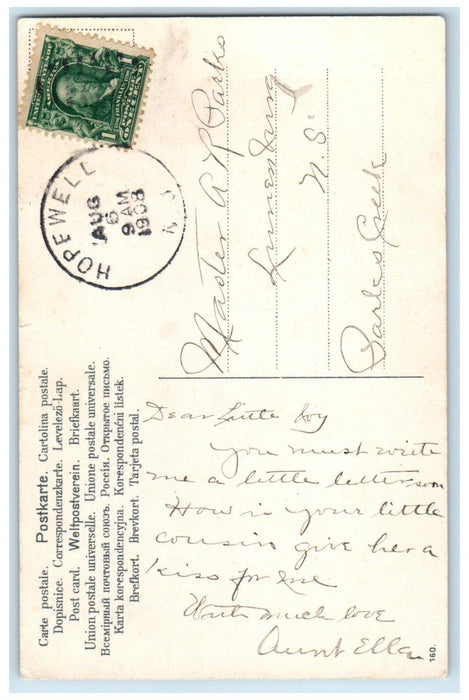 HOPEWELL
AUG
6
9 AM
1908
N. J.
Master A R Parks
Lunenburg
N. S.
Parks Creek
Carte postale. Postkarte. Cartolina postale.
Dopisnice. Correspondenzkarte. Levelező-Lap.
Post card. Weltpostverein. Briefkaart.
Union postale universelle. Unione postale universale.
Всемірный почтовый союзъ. Россія. Открытое письмо.
Karta korespondencyjna. Korespondenční listek.
Brefkort. Brevkort. Tarjeta postal.
Dear Little boy
you must write
me a little letter soon
How is your little
cousin give her a
kiss for me
With much love
Aunt Ella
160.